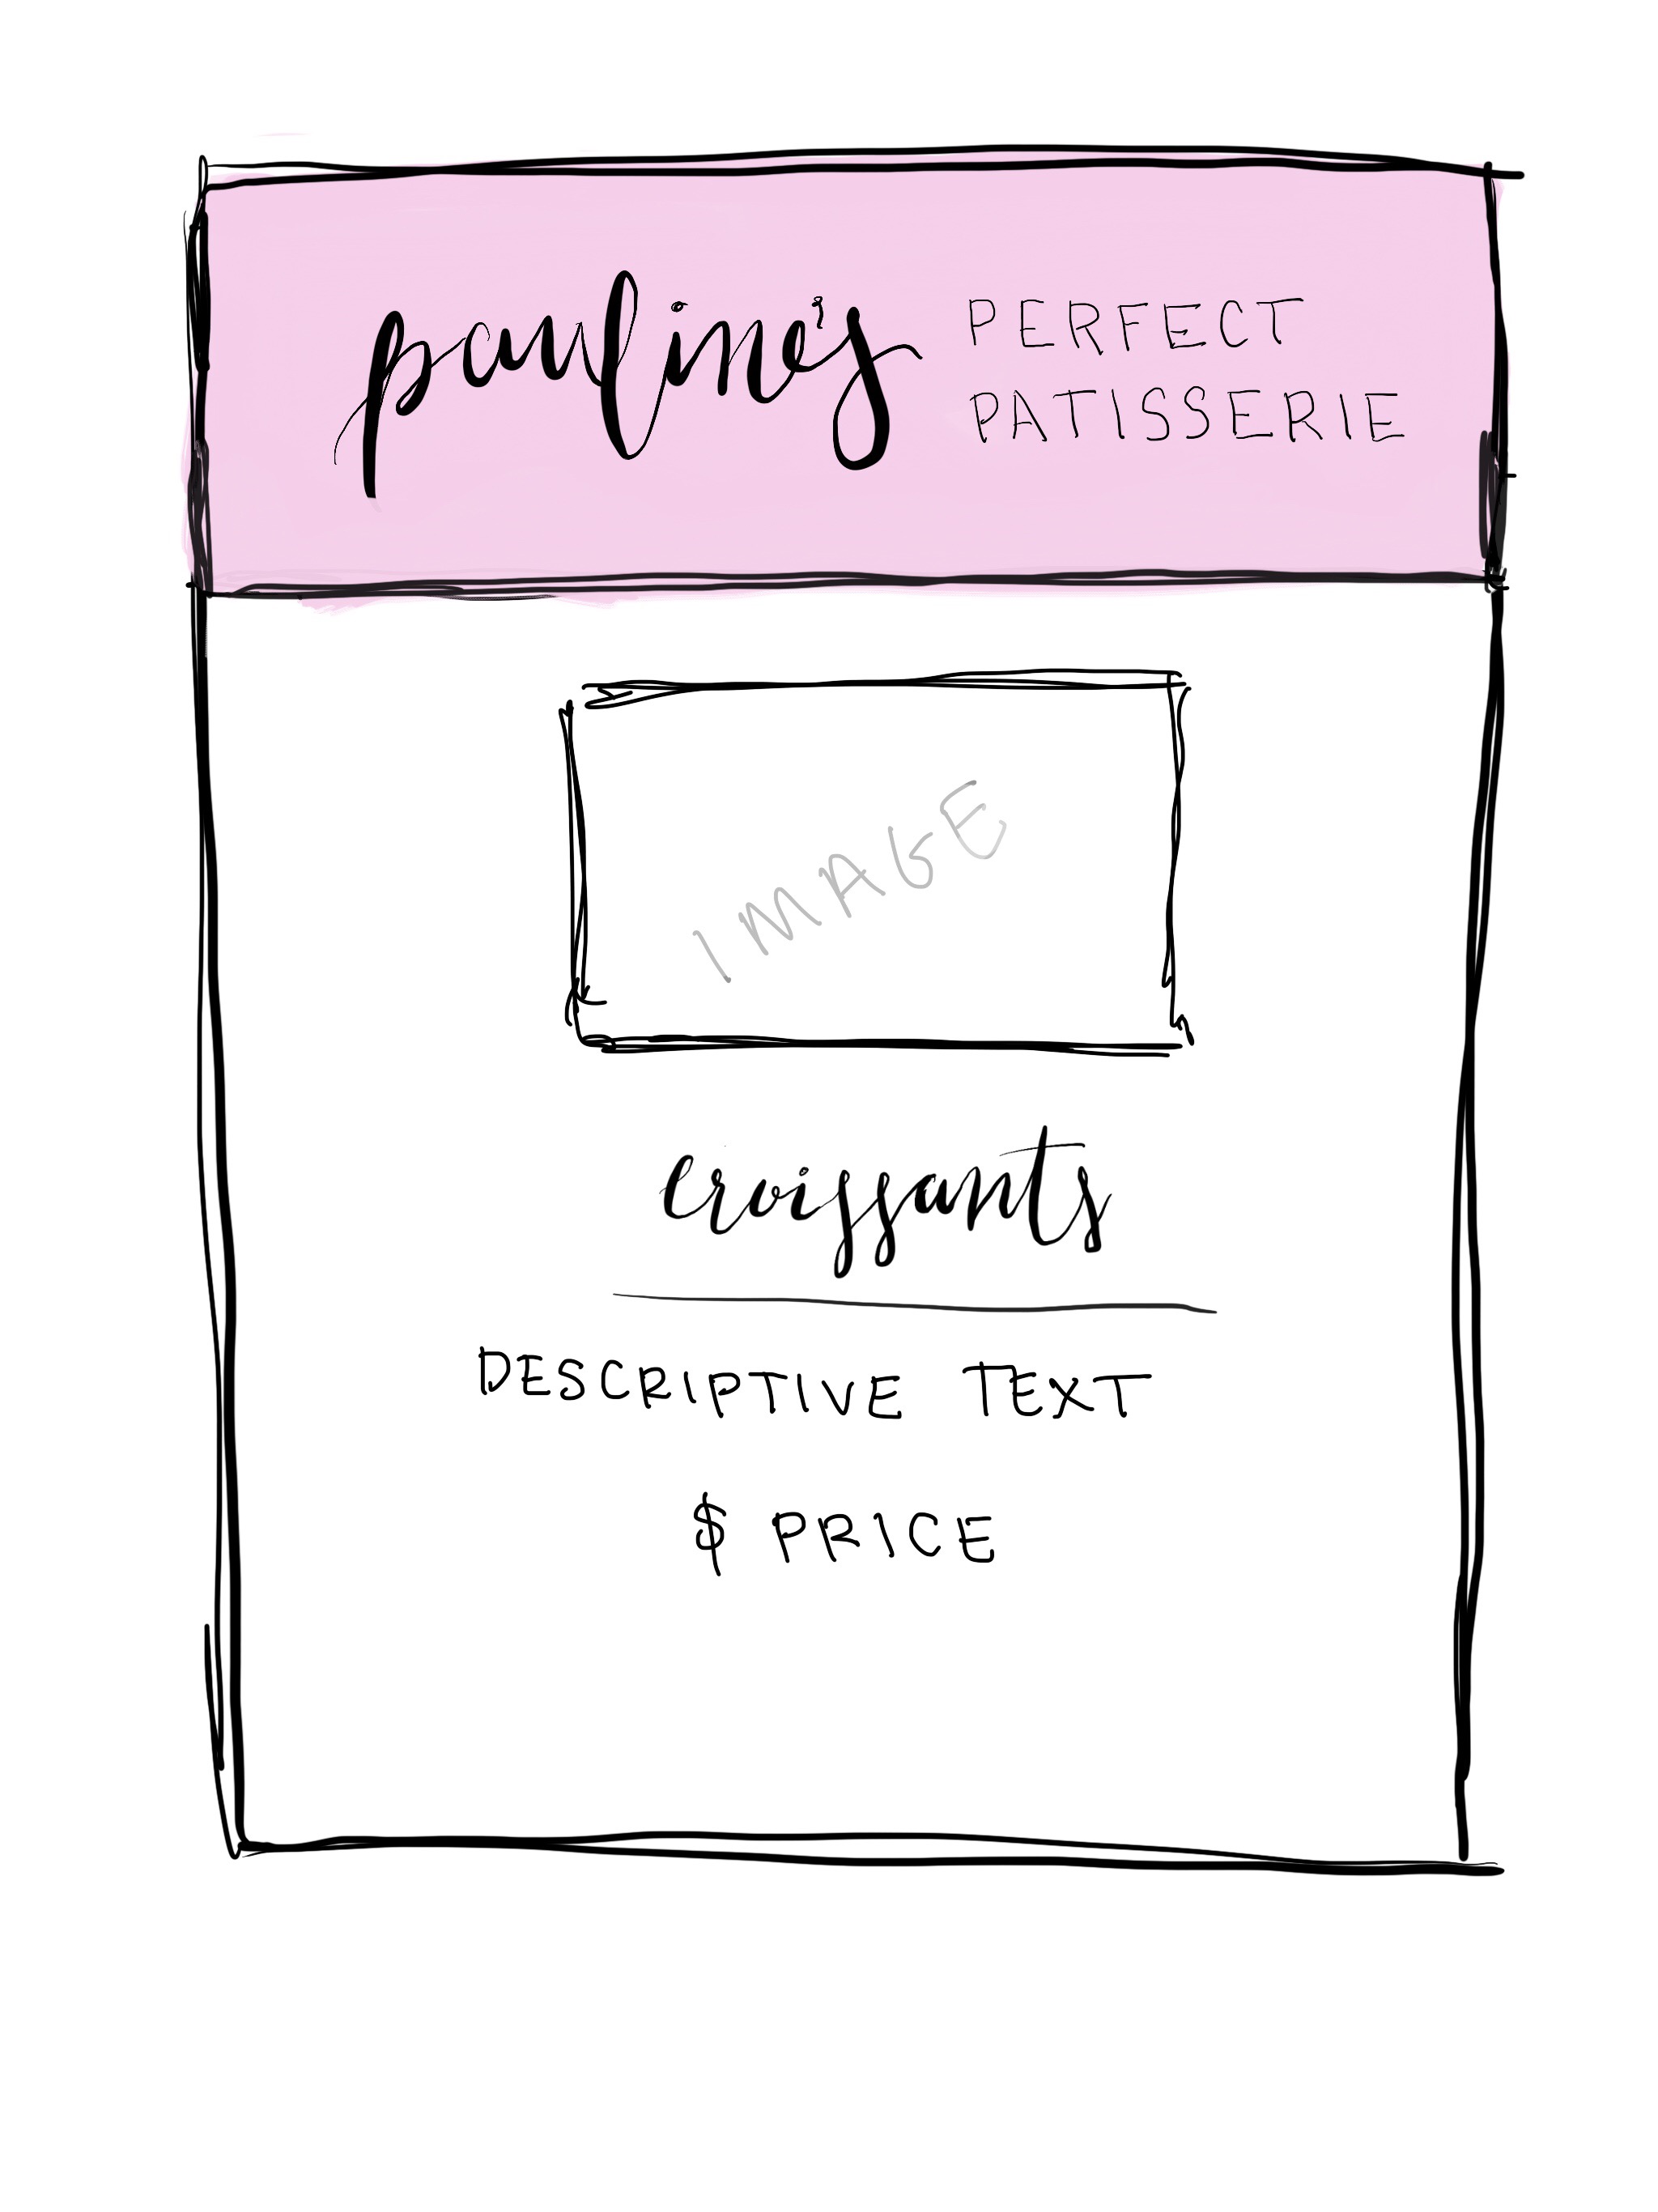 pauline's
PERFECT
PATISSERIE
IMAGE
croissants
DESCRIPTIVE TEXT
$ PRICE